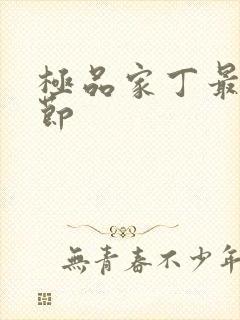 極品家丁最
節
無青春不少年